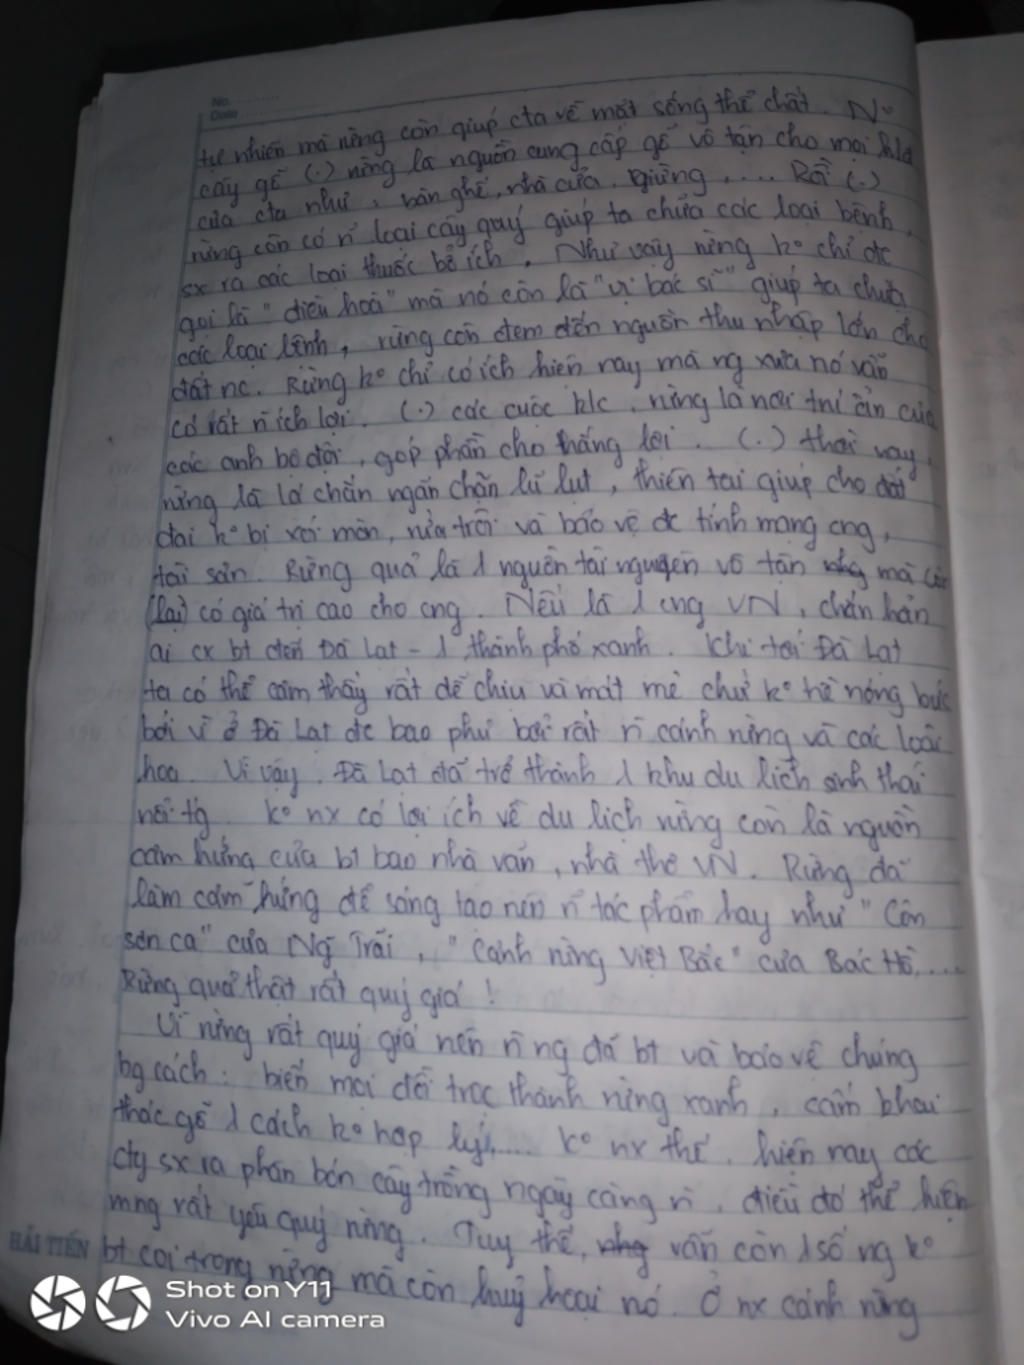 No.
Date
tự nhiên mà rừng còn giúp cta về mặt sống thể chất. N°
cây gỗ (.) rừng là nguồn cung cấp gỗ vô tận cho mọi
của cta như, bàn ghế, nhà cửa, giường, .... Rồi (.)
rừng còn có n̄ loại cây quý giúp ta chữa các loại bệnh,
sx ra các loại thuốc bổ ích. Như vậy rừng k° chỉ đc
gọi là "điều hoà" mà nó còn là "vị bác sĩ" giúp ta chữa
các loại bệnh, rừng còn đem đến nguồn thu nhập lớn cho
đất nc. Rừng k° chỉ có ích hiện nay mà ng xưa nó vẫn
có rất n̄ ích lợi. (.) các cuộc k/c, rừng là nơi trú ẩn của
các anh bộ đội, góp phần cho thắng lợi. (.) thời nay,
rừng là lá chắn ngăn chặn lũ lụt, thiên tai giúp cho đất
đai k° bị xói mòn, rửa trôi và bảo vệ đc tính mạng cng,
tài sản. Rừng quả là 1 nguồn tài nguyên vô tận nhg mà còn
(lại) có giá trị cao cho cng. Nếu là 1 cng VN, chắn hẳn
ai cx bt đến Đà Lạt - 1 thành phố xanh. Khi tới Đà Lạt
ta có thể cảm thấy rất dễ chịu và mát mẻ chứ k° hề nóng bức
bởi vì ở Đà Lạt đc bao phủ bởi rất n̄ cánh rừng và các loài
hoa. Vì vậy, Đà Lạt đã trở thành 1 khu du lịch sinh thái
nổi tg. K° nx có lợi ích về du lịch rừng còn là nguồn
cảm hứng của bt bao nhà văn, nhà thơ VN. Rừng đã
làm cảm hứng để sáng tạo nên n̄ tác phẩm hay như "Côn
sơn ca" của Ng Trãi, "Cảnh rừng Việt Bắc" của Bác Hồ,...
Rừng quả thật rất quý giá!
Vì rừng rất quý giá nên n̄ ng đã bt và bảo vệ chúng
bg cách: biến mọi đồi trọc thành rừng xanh, cấm khai
thác gỗ 1 cách k° hợp lý,.... K° nx thế, hiện nay các
cty sx ra phân bón cây trồng ngày càng n̄, điều đó thể hiện
mng rất yêu quý rừng. Tuy thế, nhg vẫn còn 1 số ng k°
HẢI TIẾN bt coi trọng rừng mà còn huỷ hoại nó. Ở nx cánh rừng
Shot on Y11
Vivo AI camera